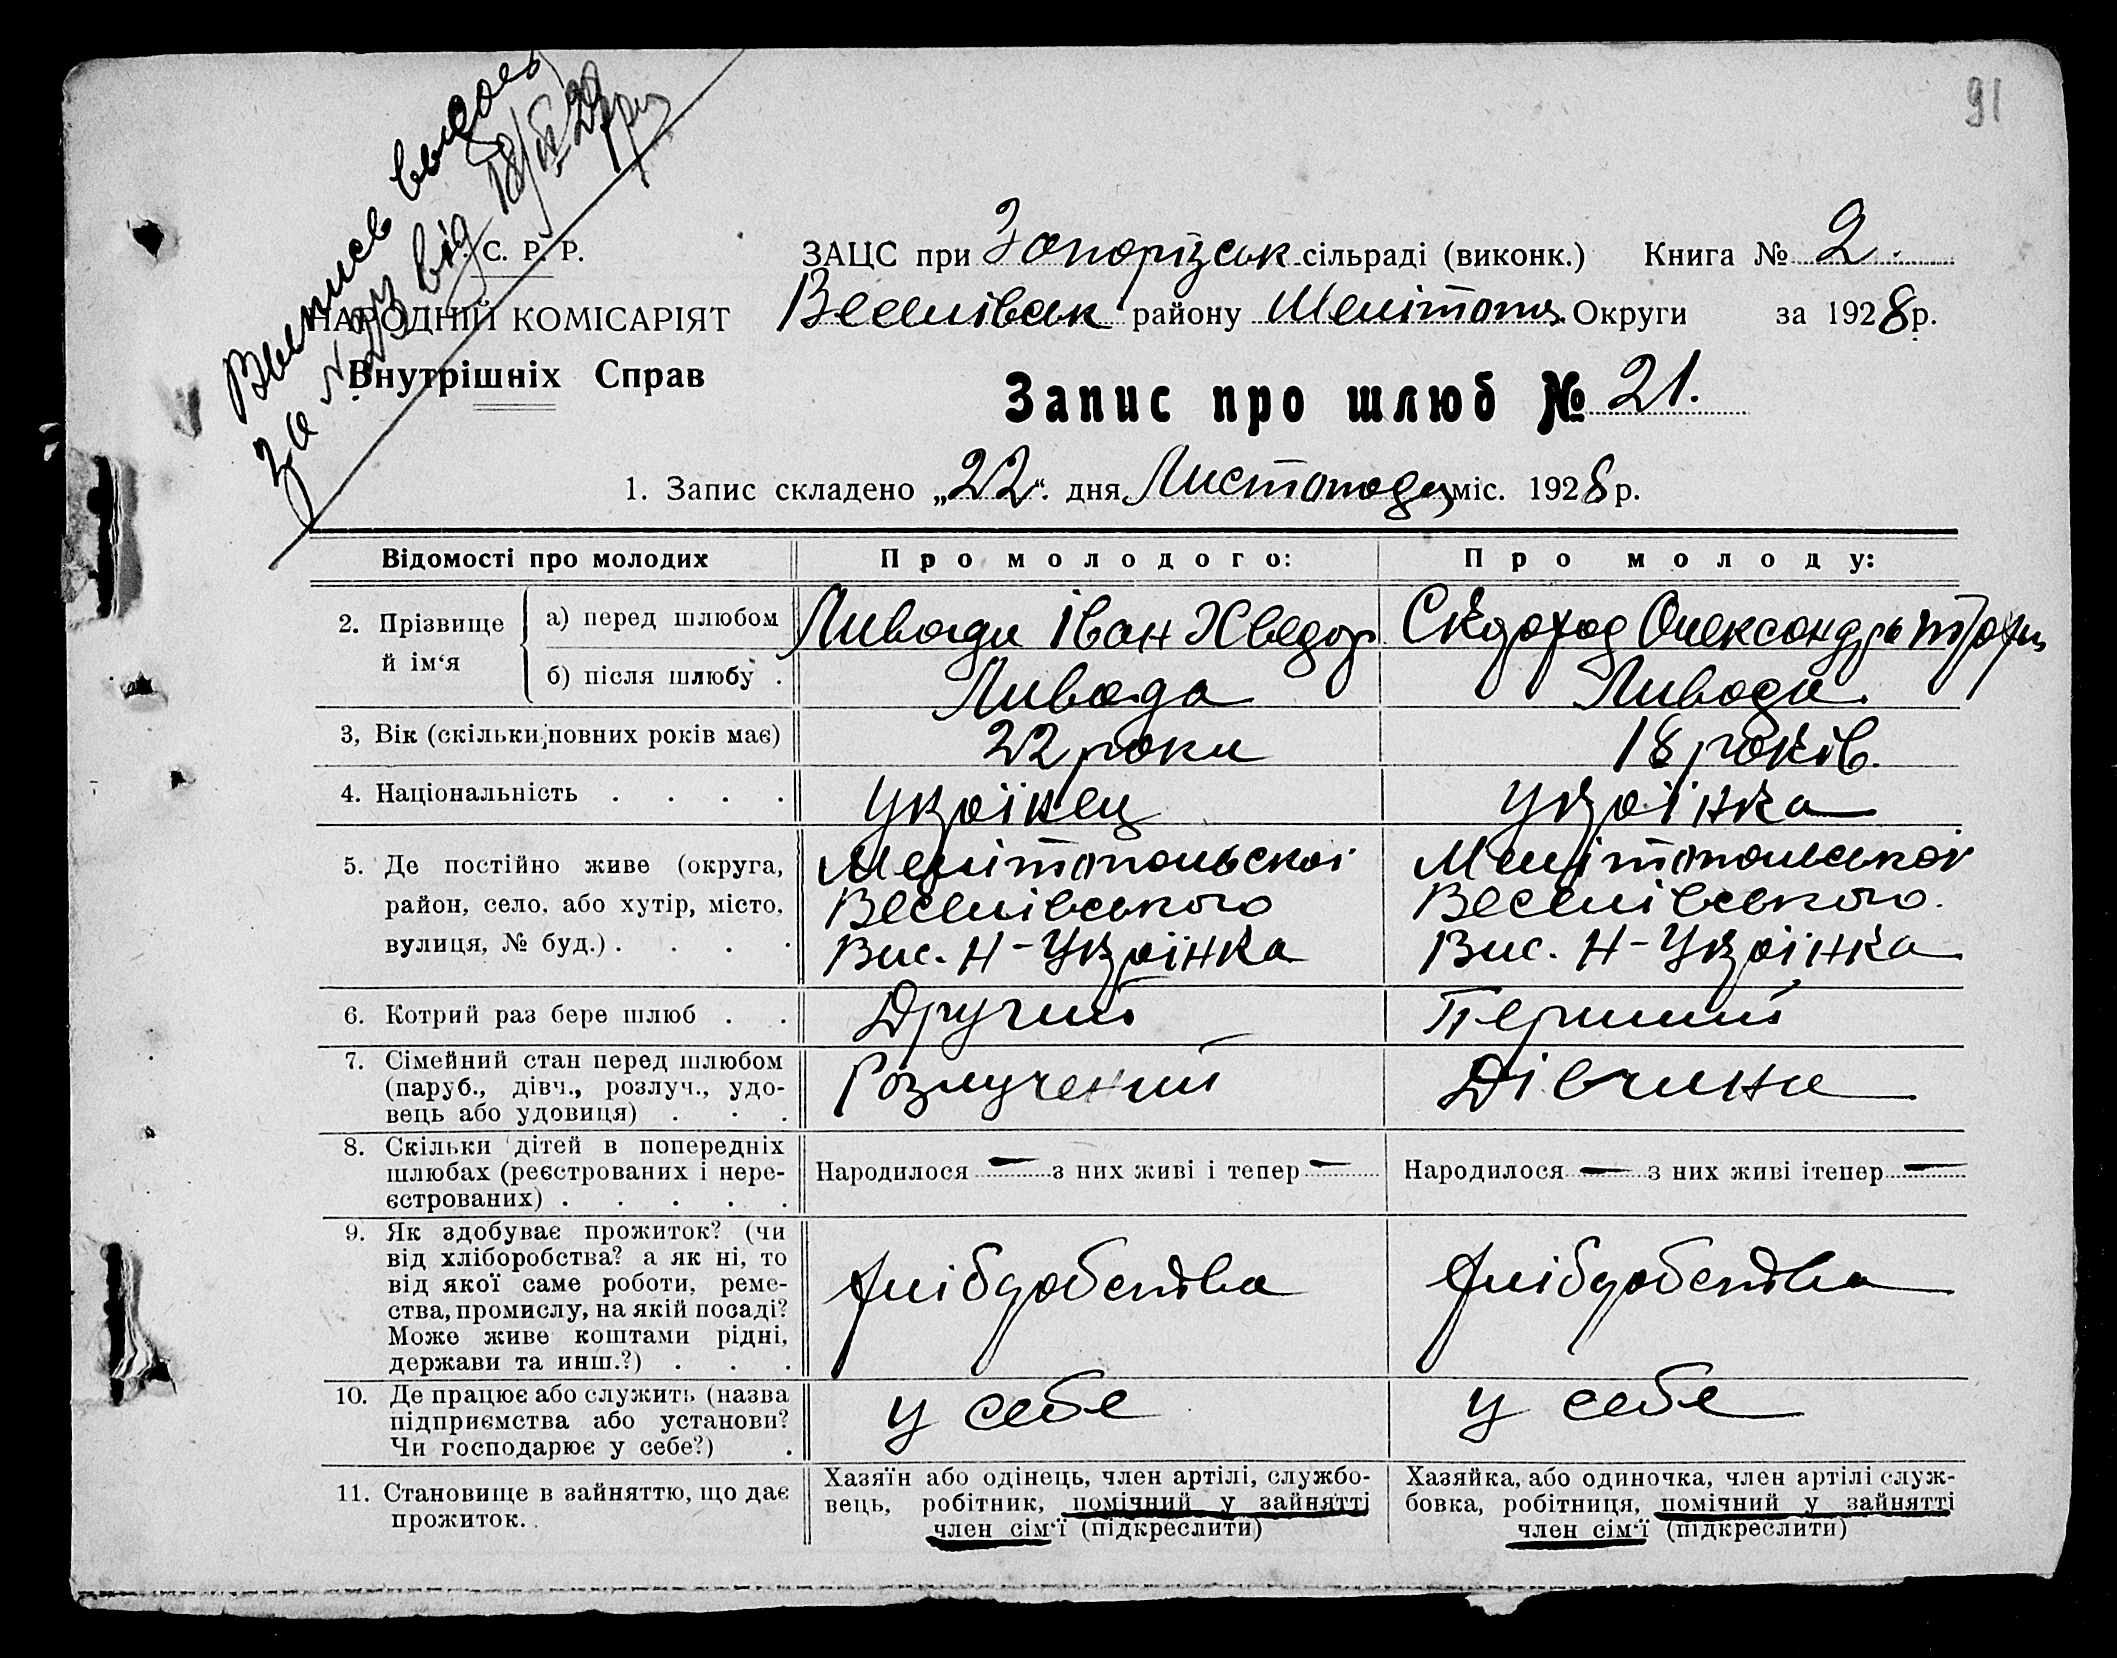 91
Выпись выдан
за № 293 від 18/ІІ 29 р.
С. Р. Р.
НАРОДНІЙ КОМІСАРІЯТ
Внутрішніх Справ
ЗАЦС при Запорізськ сільраді (виконк.) Книга № 2.
Веселівськ району Мелітоп. Округи за 1928 р.
Запис про шлюб № 21.
1. Запис складено „22“ дня Листопада міс. 1928 р.
Відомості про молодих Про молодого: Про молоду:
2. Прізвище й ім‘я
а) перед шлюбом Ливада Іван Хведор Скороход Олександра Троф
б) після шлюбу Ливада Ливада
3, Вік (скільки повних років має) 22 роки 18 років.
4. Національність Українец Українка
5. Де постійно живе (округа, Мелітопольскої Мелітопольської
район, село, або хутір, місто, Веселівського Веселівського.
вулиця, № буд.) Вис. Н-Українка Вис. Н-Українка
6. Котрий раз бере шлюб Другий Перший
7. Сімейний стан перед шлюбом
(паруб., дівч., розлуч., удо- Розлучений Дівчина
вець або удовиця)
8. Скільки дітей в попередніх
шлюбах (реєстрованих і нере- Народилося — з них живі і тепер — Народилося — з них живі ітепер —
єстрованих)
9. Як здобуває прожиток? (чи
від хліборобства? а як ні, то
від якої саме роботи, реме- хліборобства хліборобства
ства, промислу, на якій посаді?
Може живе коштами рідні,
держави та инш.?)
10. Де працює або служить (назва
підприємства або установи? у себе у себе
Чи господарює у себе?)
11. Становище в зайняттю, що дає
прожиток.
Хазяїн або одінець, член артілі, службо-
вець, робітник, помічний у зайнятті
член сім‘ї (підкреслити)
Хазяйка, або одиночка, член артілі служ-
бовка, робітниця, помічний у зайнятті
член сім‘ї (підкреслити)